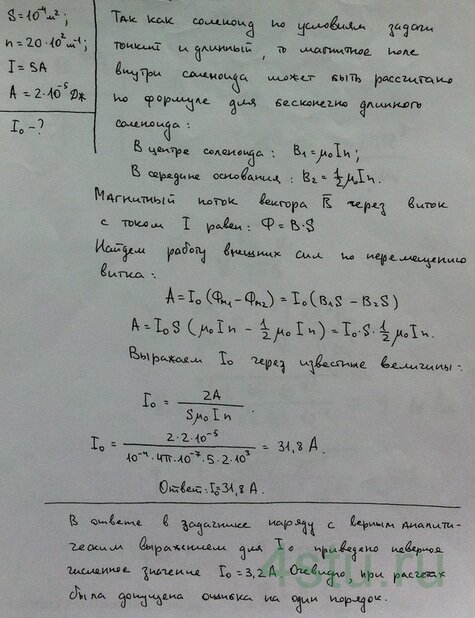 S=10⁻⁴м²;
n=20·10² м⁻¹;
I=5A
A=2·10⁻⁵ Дж
I₀-?
Так как соленоид по условиям задачи
тонкий и длинный, то магнитное поле
внутри соленоида может быть рассчитано
по формуле для бесконечно длинного
соленоида:
В центре соленоида: B₁=μ₀In;
В середине основания: B₂=½μ₀In.
Магнитный поток вектора B̅ через виток
с током I равен: Ф=B·S
Найдем работу внешних сил по перемещению
витка:
A=I₀(Фm₁-Фm₂)=I₀(B₁S-B₂S)
A=I₀S(μ₀In-½μ₀In)=I₀·S·½μ₀In.
Выражаем I₀ через известные величины:
I₀ = 2A / Sμ₀In .
I₀ = 2·2·10⁻⁵ / 10⁻⁴·4π·10⁻⁷·5·2·10³ = 31,8 A.
Ответ: I₀=31,8 A.
В ответе в задачнике наряду с верным аналити-
ческим выражением для I₀ приведено неверное
численное значение I₀=3,2A. Очевидно, при расчетах
была допущена ошибка на один порядок.
4stu.ru